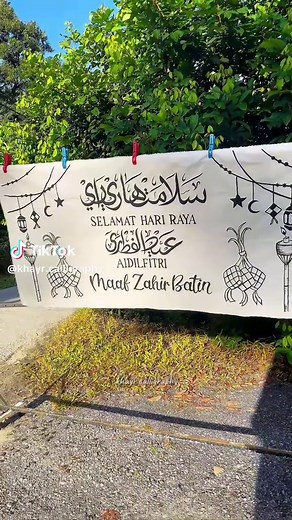 سلامت هاري راي
SELAMAT HARI RAYA
عيد الفطري
AIDILFITRI
Maaf Zahir Batin
TikTok
khayr.calligraphy